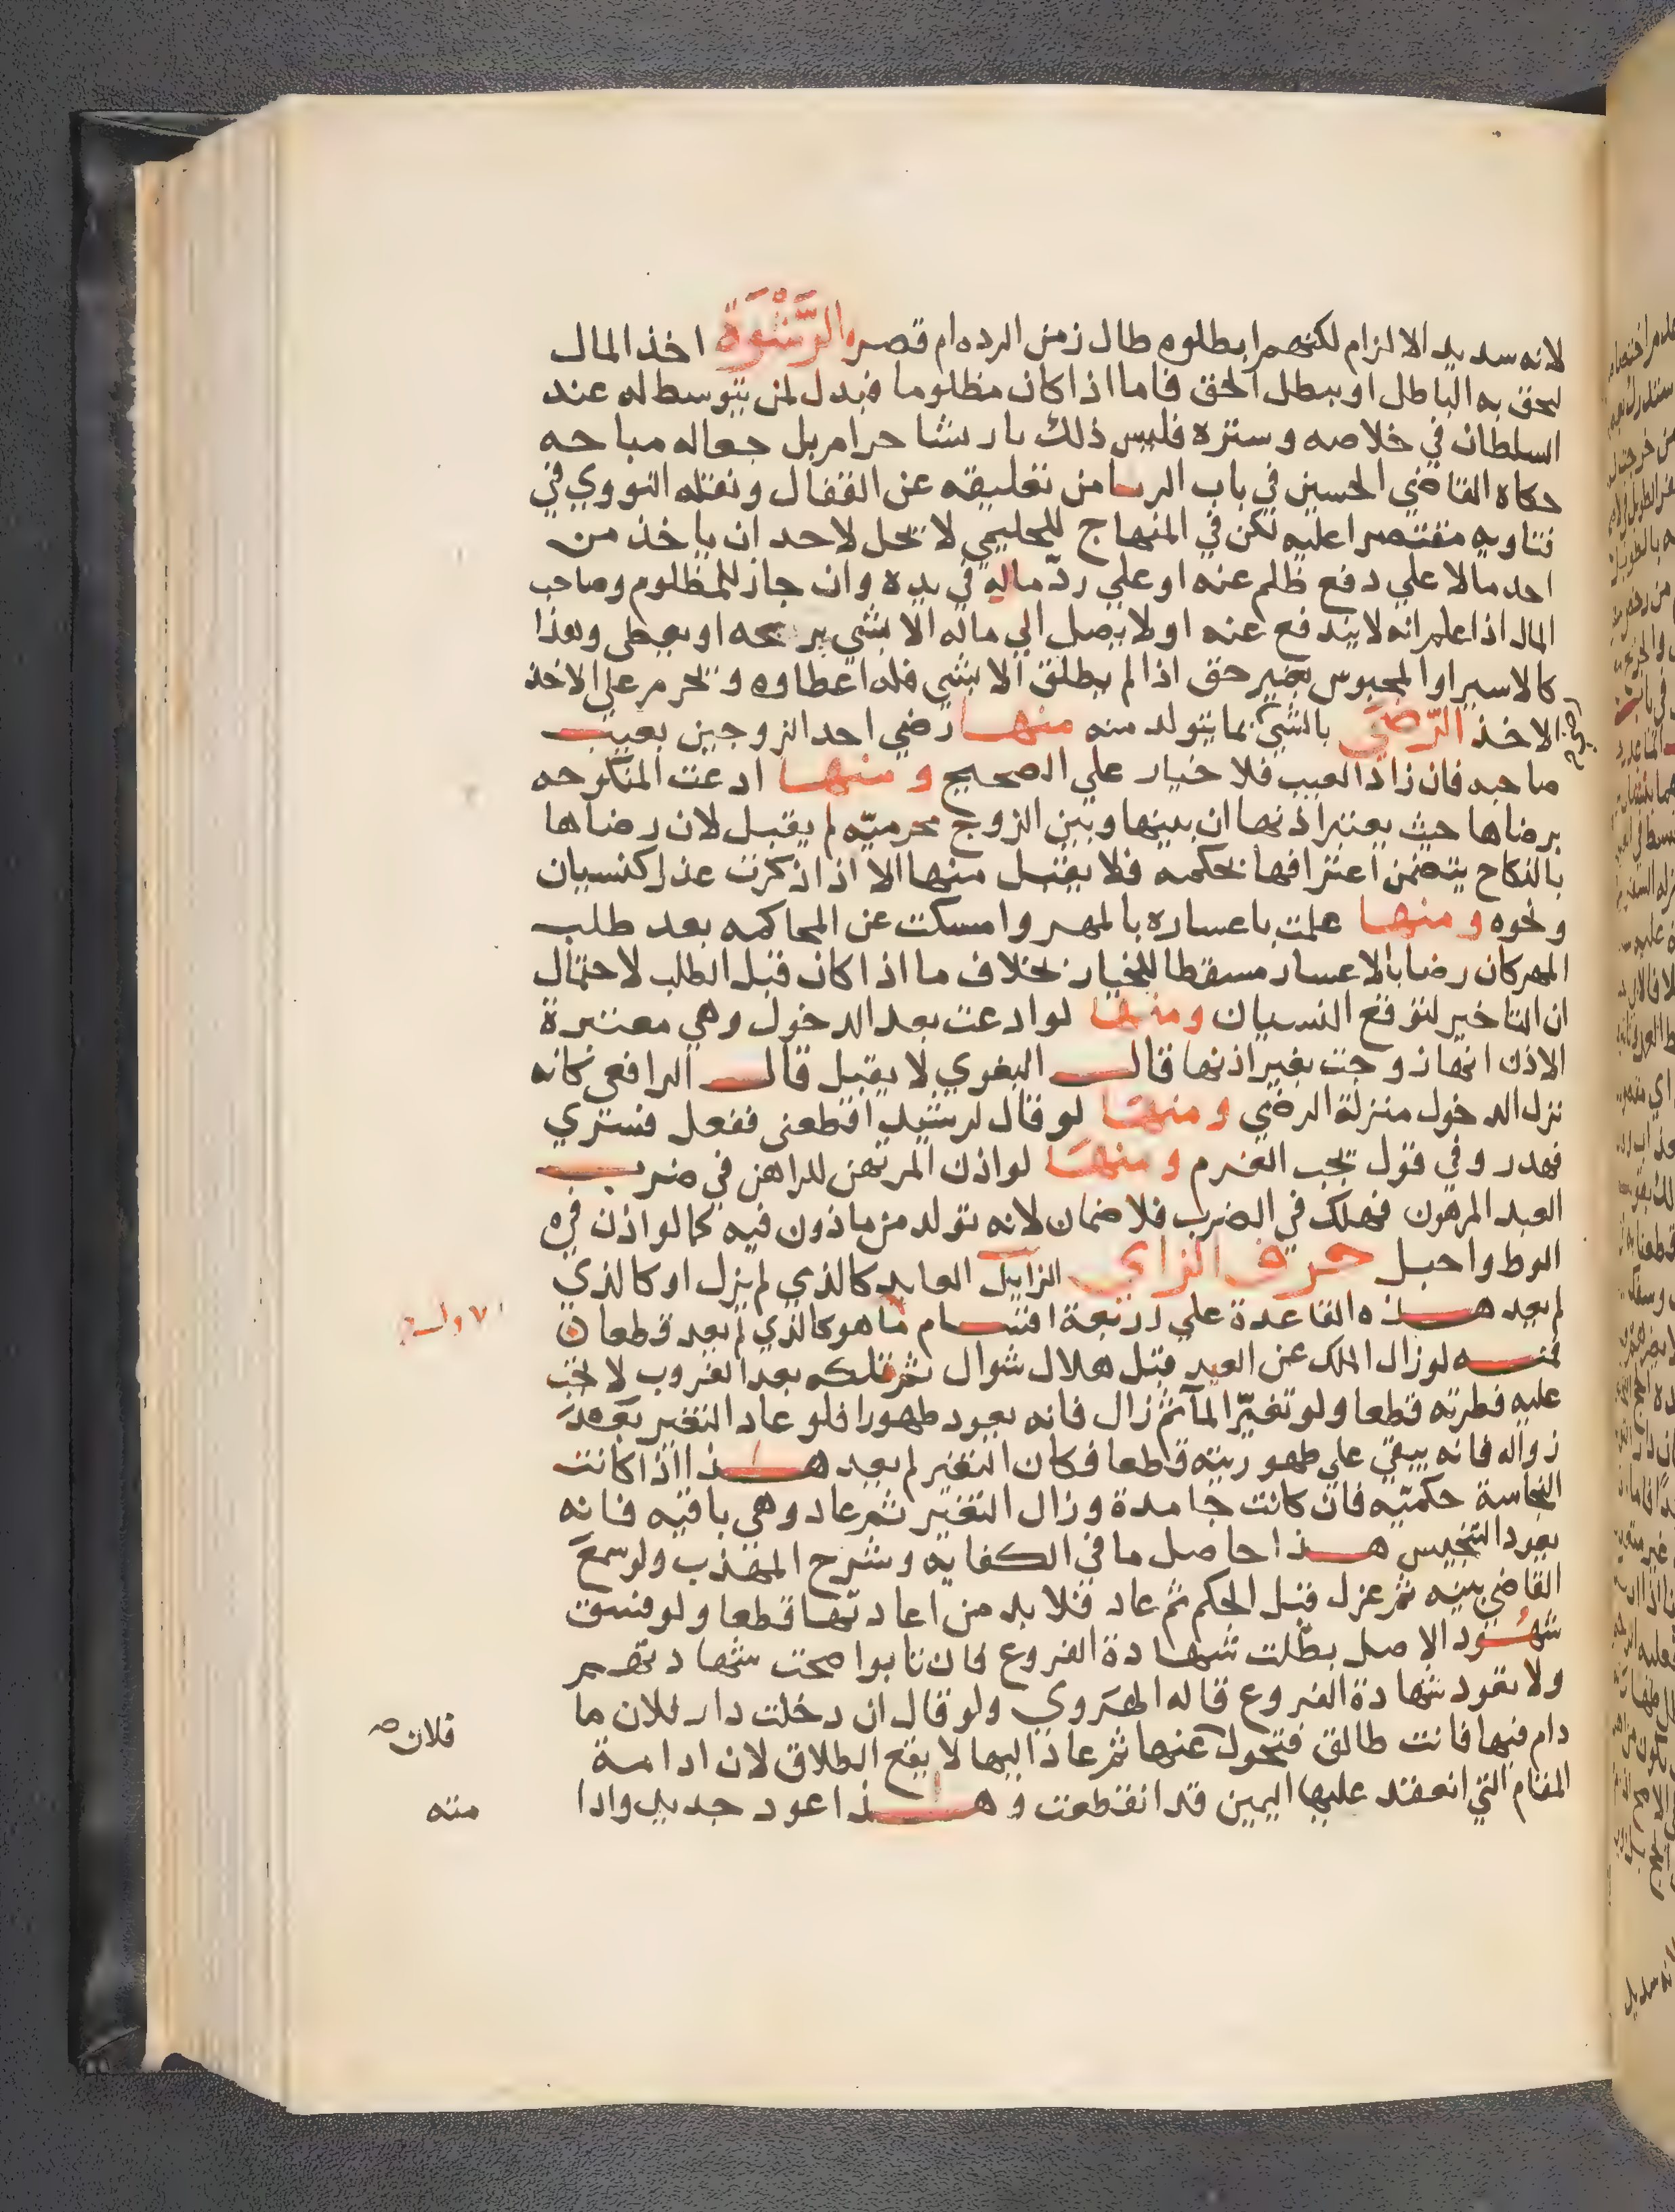 لانه سديد الالزام لكنهم ابطلوه طال زمن الرده ام قصر والرَّشْوَة اخذ المال
ليحق به الباطل او يبطل الحق فاما اذا كان مظلوما فبدل لمن يتوسط له عند
السلطان في خلاصه وستره فليس ذلك بارتشا حرام بل جعاله مباحه
حكاه القاضي الحسين في باب الربا من تعليقه عن القفال ونقله النووي في
فتاويه مقتصرا عليه لكن في المنهاج للحليمي لا يحل لاحد ان ياخذ من
احد مالا علي دفع ظلم عنه او علي ردّ ماله في يده وان جاز للمظلوم وصاحب
المال اذا علم انه لا يندفع عنه او لا يصل الي ماله الا بشي يرشحه او يعطي وهذا
كالاسير او المحبوس بغير حق اذا لم يطلق الا بشي فله اعطاوه ويحرم علي الاخذ
الاخذ الرّضَي بالشي بما يتولد منه منها رضي احد الزوجين بعيب
صاحبه فان زاد العيب فلا خيار علي الصحيح ومنها ادعت المنكوحه
برضاها حيث يعتبر اذنها ان بينها وبين الزوج محرميّه لم يقبل لان رضاها
بالنكاح يتضمن اعترافها بحكمه فلا يقبل منها الا اذا ذكرت عذرا كنسيان
ونحوه ومنها علمت باعساره بالمهر وامسكت عن المحاكمه بعد طلب
المهر كان رضا بالاعسار مسقطا للخيار بخلاف ما اذا كان قبل الطلب لاحتمال
ان التاخير لتوقع النسيان ومنها لو ادعت بعد الدخول وهي معتبرة
الاذن انها زوجت بغير اذنها قال البغوي لا يقبل قال الرافعي كانه
نزل الدخول منزلة الرضي ومنها لو قال لرشيد اقطعني ففعل فسري
فهدر وفي قول يجب الغرم ومنها لو اذن المرتهن للراهن في ضرب
العبد المرهون فهلك في الضرب فلا ضمان لانه تولد من ماذون فيه كما لو اذن في
الوط واحبل حرف الزاي الزايل العايد كالذي لم يزل او كالذي
لم يعد هذه القاعدة علي اربعة اقسام ما هو كالذي لم يعد قطعا
فمنه لو زال الملك عن العبد قبل هلال شوال ثم تملكه بعد الغروب لا تجب
عليه فطرته قطعا ولو تغيّر المآ ثم زال فانه يعود طهورا فلو عاد التغير بعد
زواله فانه يبقي علي طهوريته قطعا فكان التغير لم يعد هذا اذا كانت
النجاسة حكميّه فان كانت جامدة وزال التغير ثم عاد وهي باقيه فانه
يعود التنجيس هذا حاصل ما في الكفايه وشرح المهذب ولو سمع
القاضي بينه ثم عزل قبل الحكم ثم عاد فلا بد من اعادتها قطعا ولو فسق
شهُود الاصل بطلت شهادة الفروع فان تابوا صحت شهادتهم
ولا يعود شهادة الفروع قاله الهروي ولو قال ان دخلت دار فلان ما
دام فيها فانت طالق فتحول عنها ثم عاد اليها لا يقع الطلاق لان ادامة
المقام التي انعقد عليها اليمين قد انقطعت وهذا عود جديد واذا
فلان
منه